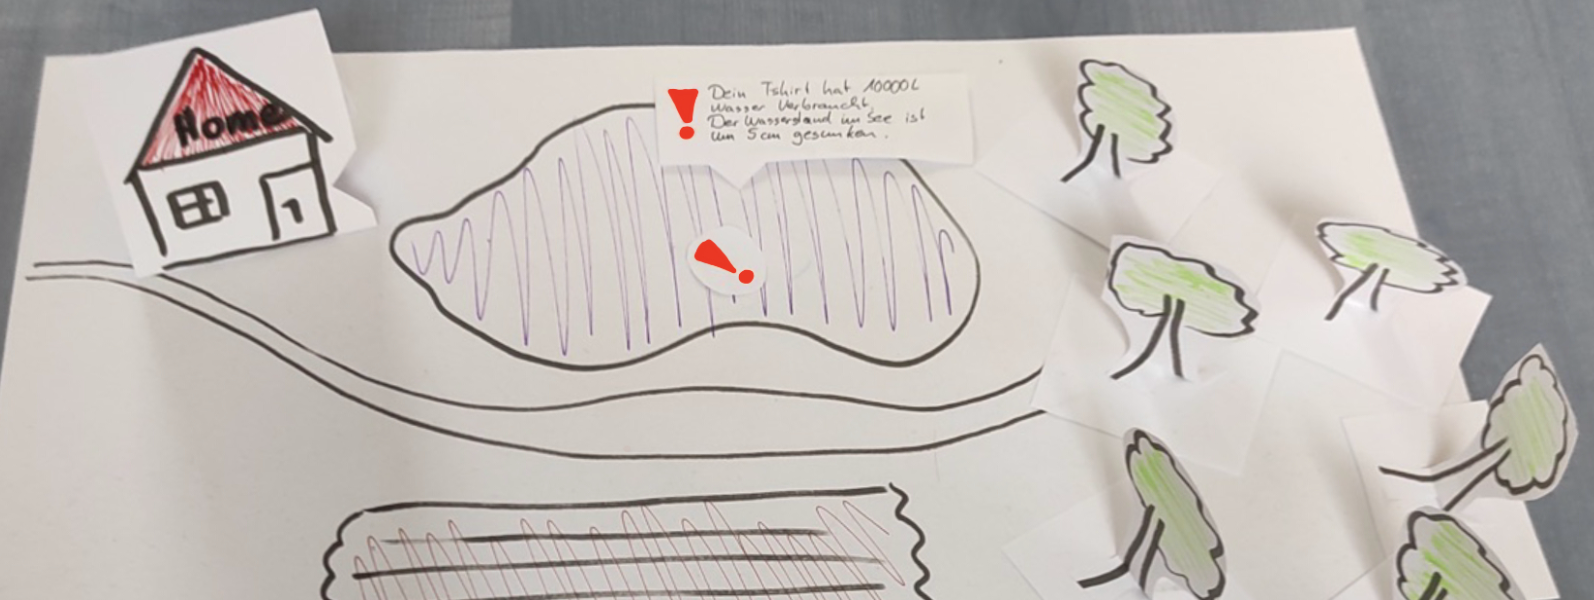 Home
! Dein Tshirt hat 10000L
wasser verbraucht.
Der Wasserstand im See ist
um 5cm gesunken.
!